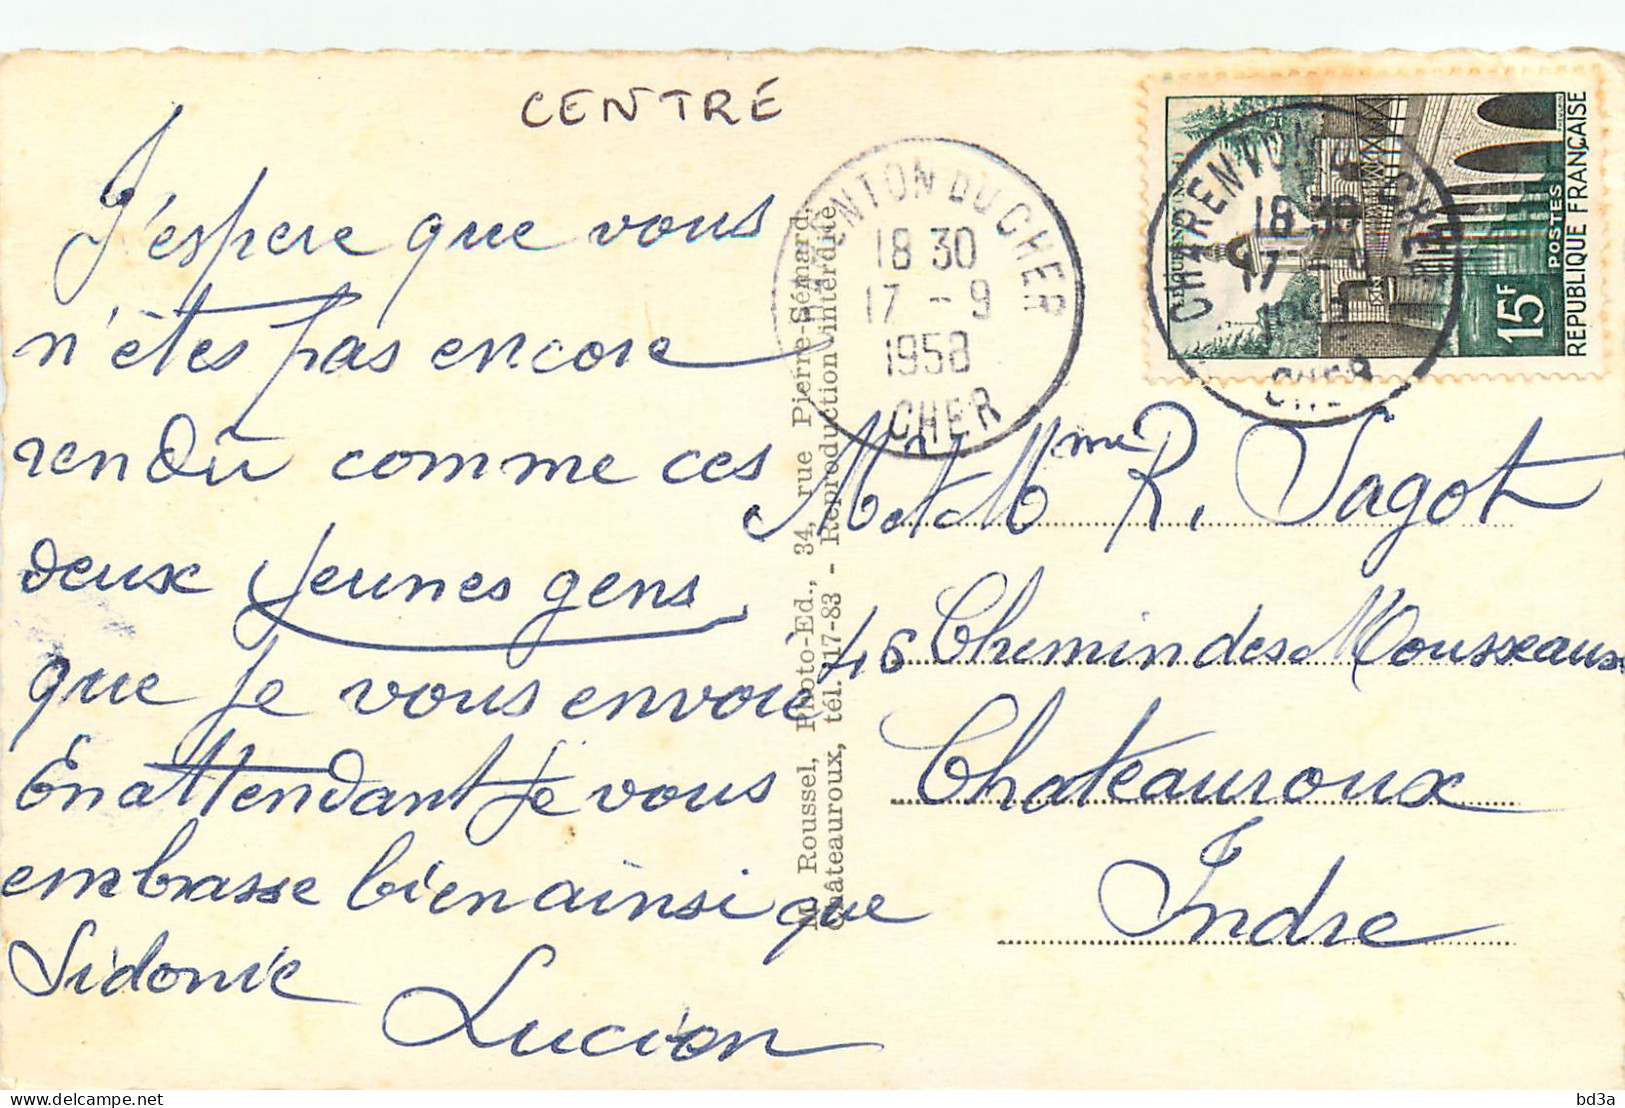 CENTRE
J'espere que vous
n'êtes pas encore
rendu comme ces
deux jeunes gens
que je vous envoie
En attendant je vous
embrasse bien ainsi que
Sidonie
Lucien
M. Roussel, Photo-Ed., 34, rue Pierre-Sémard,
Châteauroux, tél. 17-83 - Reproduction interdite
CHARENTON DU CHER
18 30
17 - 9
1958
CHER
CHARENTON DU CHER
18 30
17 - 9
1958
CHER
15F
POSTES
REPUBLIQUE FRANÇAISE
Mr et Mme R. Sagot
46 Chemin des Mousseaux
Chateauroux
Indre
delcampe.net
bd3a